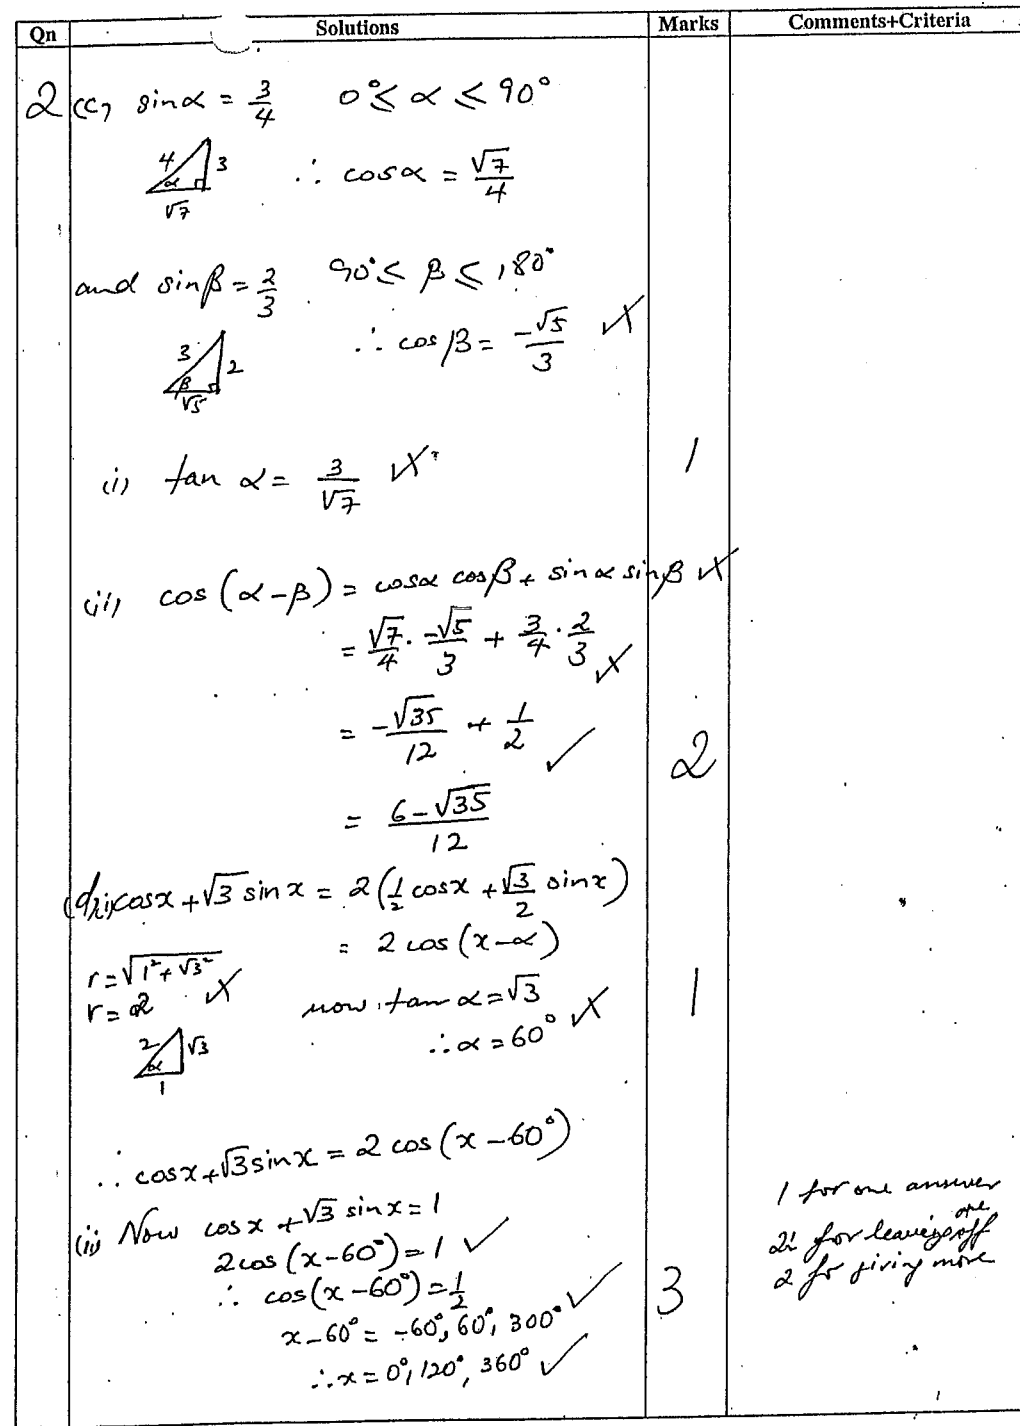 Qn Solutions Marks Comments+Criteria
2 (c) sinα = 3/4 0° ≤ α ≤ 90°
4 3 α √7
∴ cosα = √7/4
and sinβ = 2/3 90° ≤ β ≤ 180°
3 2 β √5
∴ cosβ = -√5/3
(i) tan α = 3/√7 1
(ii) cos(α-β) = cosα cosβ + sinα sinβ
= √7/4 · -√5/3 + 3/4 · 2/3
= -√35/12 + 1/2 ✓ 2
= (6-√35)/12
(d)(i) cosx + √3 sinx = 2(1/2 cosx + √3/2 sinx)
= 2 cos(x-α)
r = √1²+√3²
r = 2
now, tan α = √3 1
∴ α = 60°
2 √3 α 1
∴ cosx + √3 sinx = 2 cos(x-60°)
(ii) Now cosx + √3 sinx = 1
2cos(x-60°) = 1 ✓
∴ cos(x-60°) = 1/2 ✓ 3
x-60° = -60°, 60°, 300°
∴ x = 0°, 120°, 360° ✓
1 for one answer
for leaving off one
2 for giving more